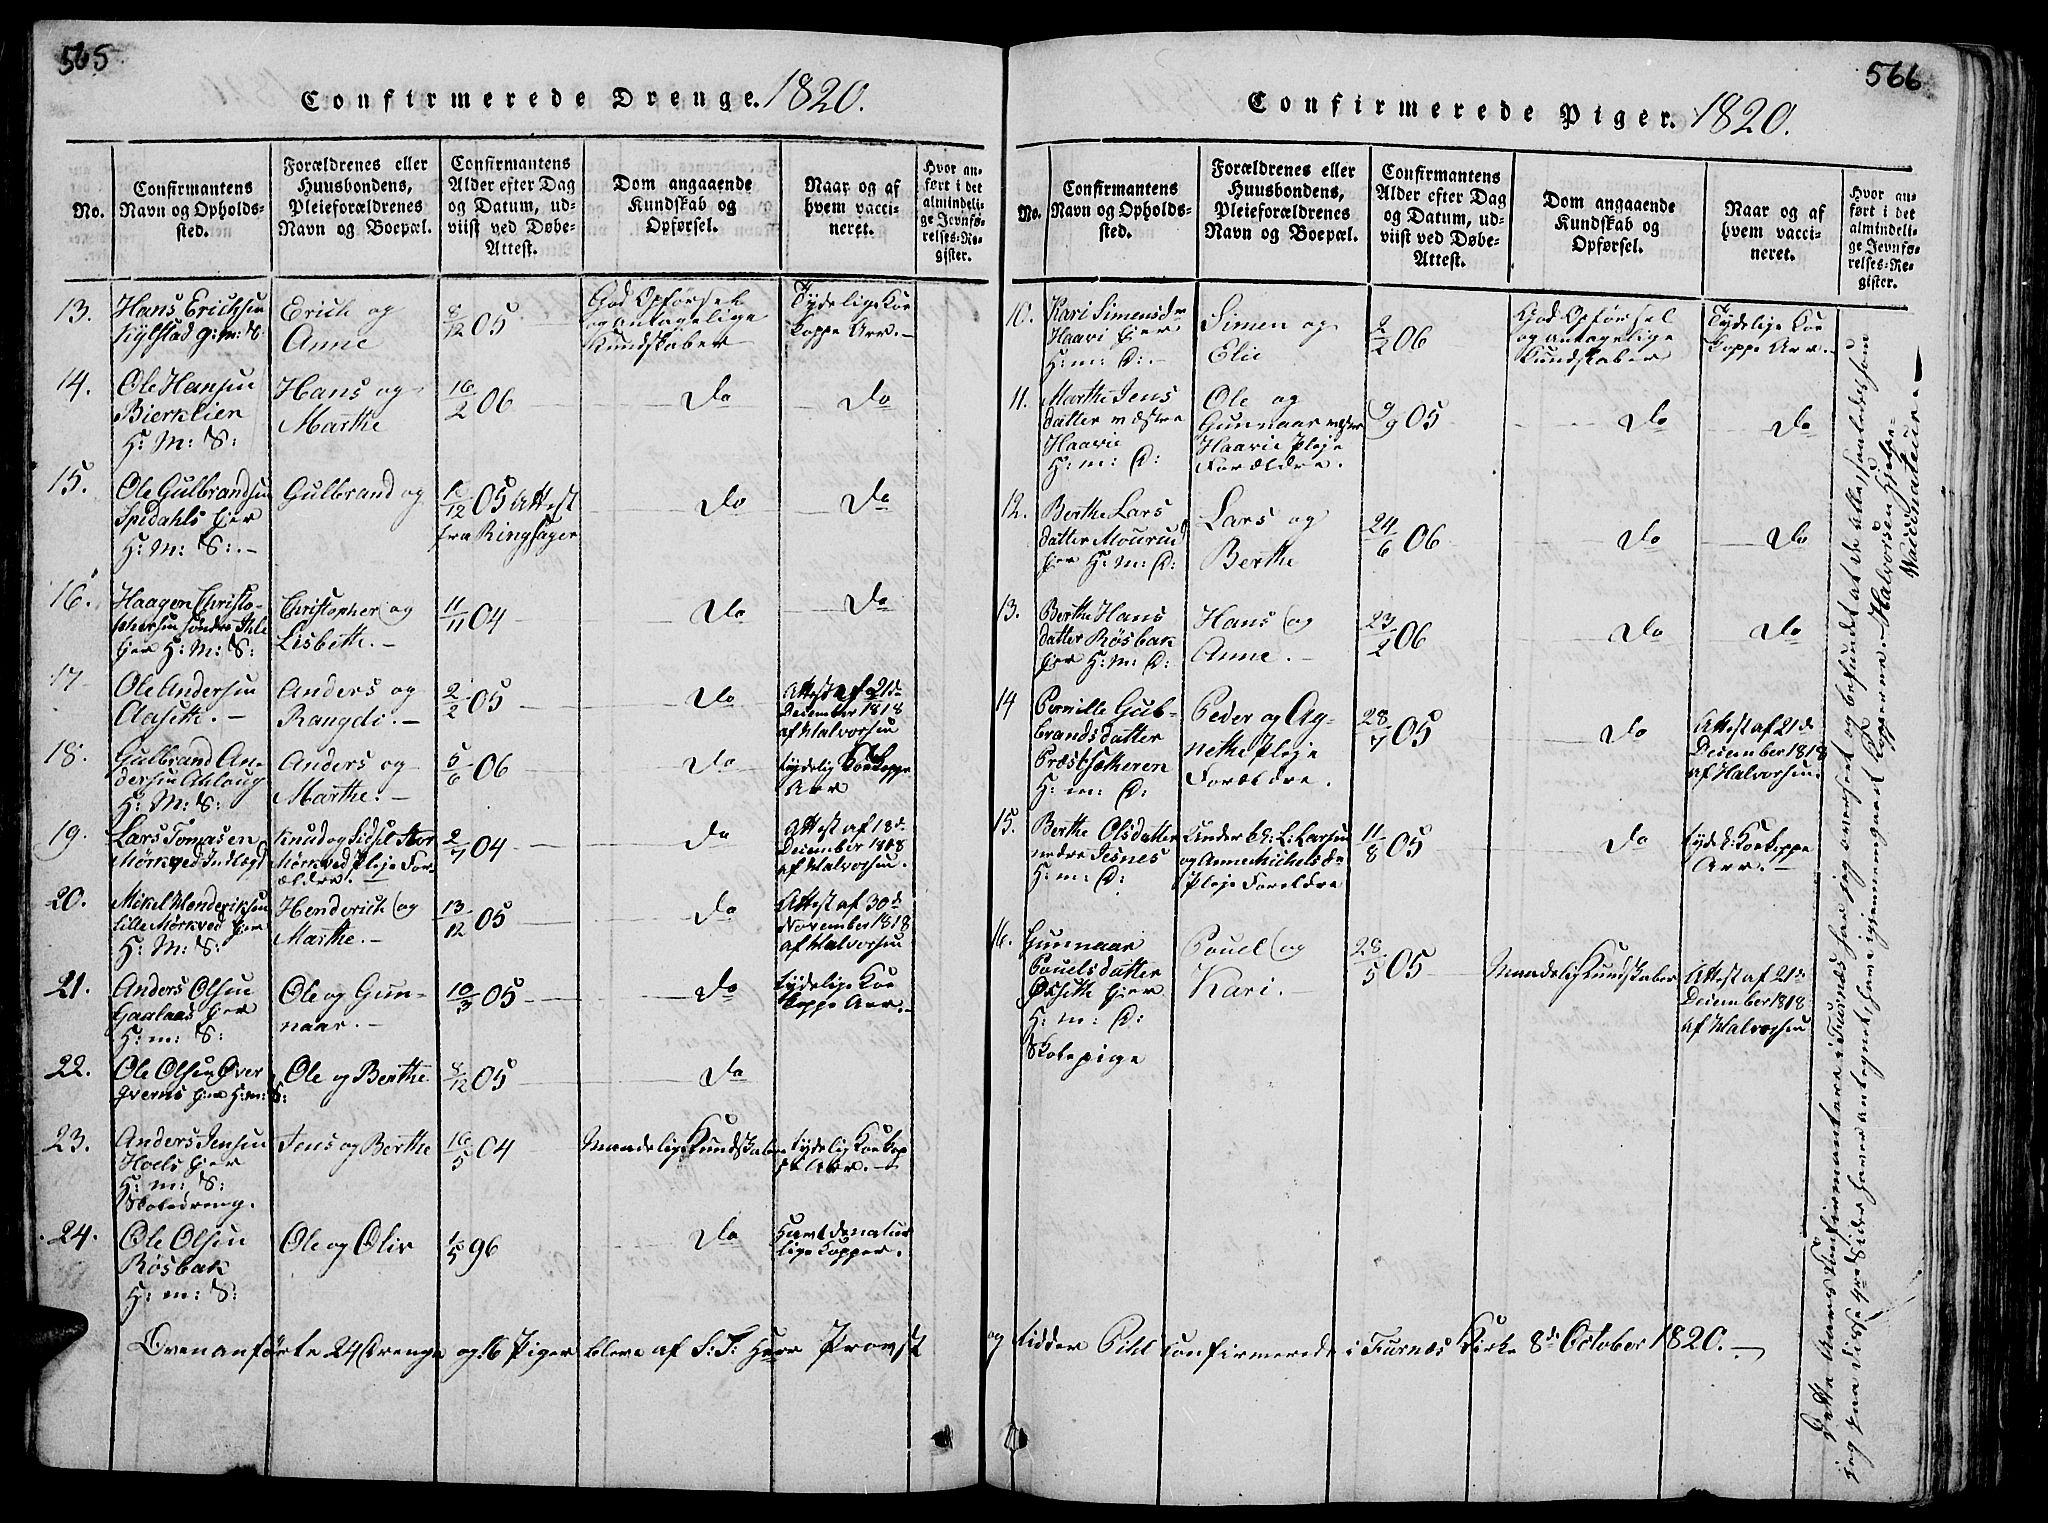 565
Confirmerede Drenge. 1820.
No.
Confirmantens
Navn og Opholds-
sted.
Forældrenes eller
Huusbondens,
Pleieforældrenes
Navn og Boepæl.
Confirmantens
Alder efter Dag
og Datum, ud-
viist ved Døbe-
Attest.
Dom angaaende
Kundskab og
Opførsel.
Naar og af
hvem vacci-
neret.
Hvor an-
ført i det
almindeli-
ge Jevnfø-
relses-Re-
gister.
13.
Hans Erichsen
Kylstad g: m: S:
Erich og
Anne
8/12 05
God Opførsel
og antagelige
Kundskaber
Tydelige Koe
koppe Arr.
14.
Ole Hansen
Bierklien
H: M: S:
Hans og
Marthe
16/2 06
Do
Do
15.
Ole Gulbrandsen
Spidahls Eier
H: M: S:
Gulbrand og
05 Attest
fra Ringsager
Do
Do
16.
Haagen Christo-
phersen søndre Ihle
Eier H: M: S:
Christopher og
Lisbeth.
11/11 04
Do
Do
17
Ole Andersen
Aaseth.
Anders og
Rangdi.
2/2 05
Do
Attest af 21de
December 1818
af Halvorsen
18.
Gulbrand An-
dersen Ahloug
H: M: S:
Anders og
Marthe.
5/6 06
Do
tydelig Koekoppe
Arr
19.
Lars Tomasen
Mørkved Indlægd
Knud og Sidsel Stor
Mørkved Pleje For-
ældre.
2/7 04
Do
Attest af 18de
December 1818
af Halvorsen.
20.
Mikel Henderiksen
lille Mørkved Eier
H: M: S:
Henderich og
Marthe.
13/12 05
Do
Attest af 30de
November 1818
af Halvorsen
21.
Anders Olsen
Gaalaas Eier
H: m: S:
Ole og Gun-
naar.
10/3 05
Do
tydelige Koe
koppe Arr.
22.
Ole Olsen Over
Hverns Eier H: m: S:
Ole og Berthe
8/12 05
Do
23.
Anders Jensen
Hoels Eier
H: m: S:
Skoledreng.
Jens og Berthe
16/5 04
Maadelig Kundskaber
tydelig Koekop
pe Arr.
24.
Ole Olsen
Røsbak
H: m: S:
Ole og Oliv
96
Do
Havt de natur
lige Kopper.
Ovenanførte 24 Drenge og 16 Piger bleve af S: T: Herr Provst
566
Confirmerede Piger. 1820.
No.
Confirmantens
Navn og Opholds-
sted.
Forældrenes eller
Huusbondens,
Pleieforældrenes
Navn og Boepæl.
Confirmantens
Alder efter Dag
og Datum, ud-
viist ved Døbe-
Attest.
Dom angaaende
Kundskab og
Opførsel.
Naar og af
hvem vacci-
neret.
Hvor an-
ført i det
almindeli-
ge Jevnfø-
relses-Re-
gister.
10.
Kari Simensdr
Haavi Eier
H: m: D:
Simen og
Elie
2/2 06
God Opførsel
og antagelige
Kundskaber
Tydelige Koe
koppe Arr.
11.
Marthe Jens
datter væstre
Haavie
H: m: D:
Ole og
Gunnaar væstre
Haavie Pleje
Forældre.
9/9 05
Do
Do
12.
Berthe Lars
datter Mourud
Eier H: M: D:
Lars og
Berthe
24/6 06
Do
Do
13.
Berthe Hans
datter Røsbak
Eier H: M: D:
Hans og
Anne.
23/2 06
Do
Do
14
Pernille Gul-
brandsdatter
Præstsætheren
H: m: D:
Peder og Ag-
nethe Pleje
Forældre.
28/7 05
Do
Attest af 21de
December 1818
af Halvorsen.
15.
Berthe Olsdatter
nedre Jesnes
H: m: D:
Under C: L: Larsen
og Anne Michelsdr
Pleje Foreldre
11/8 05
Do
tydel: Koekoppe
Arr.
16.
Gunnaar
Pouelsdatter
Øxseth Eier
H: m: D:
Skolepige
Pouel og
Kari.
28/5 05
Maadelig Kundskaber
Attest af 21de
December 1818
af Halvorsen
og Ridder Pihl confirmerede i Furnæs Kirke 8de October 1820.
Dette Aars Confirmantere i Furnæs har jeg overseet og befundet at de alle, saaledes som
jeg paa disse 4re Sider haver antegnet, have igjennemgaaet Kopperne. Halvorsen
Vaccinateur.